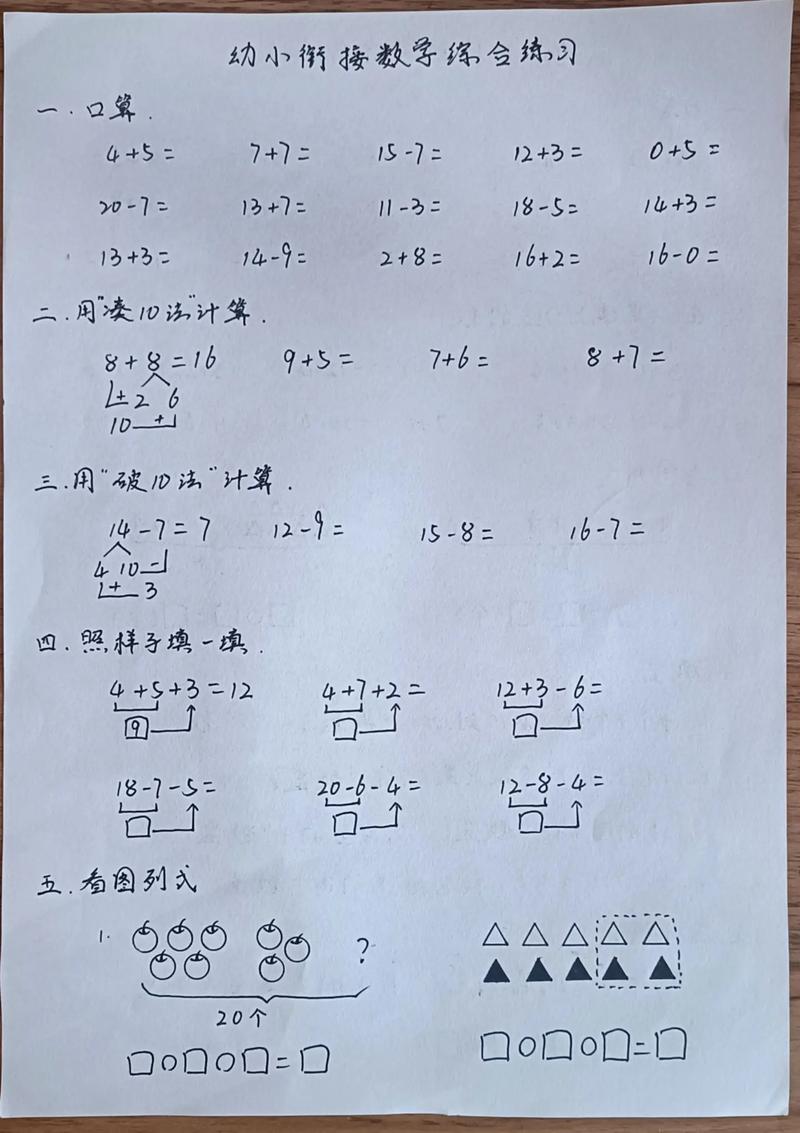 幼小衔接数学综合练习
一.口算.
4+5= 7+7= 15-7= 12+3= 0+5=
20-7= 13+7= 11-3= 18-5= 14+3=
13+3= 14-9= 2+8= 16+2= 16-0=
二.用"凑10法"计算.
8+8=16 9+5= 7+6= 8+7=
+ 2 6
10 +
三.用"破10法"计算.
14-7=7 12-9= 15-8= 16-7=
4 10 -
+ 3
四.照样子填一填.
4+5+3=12 4+7+2= 12+3-6=
9
18-7-5= 20-6-4= 12-8-4=
五.看图列式
1. ?
20个
□○□○□=□ □○□○□=□